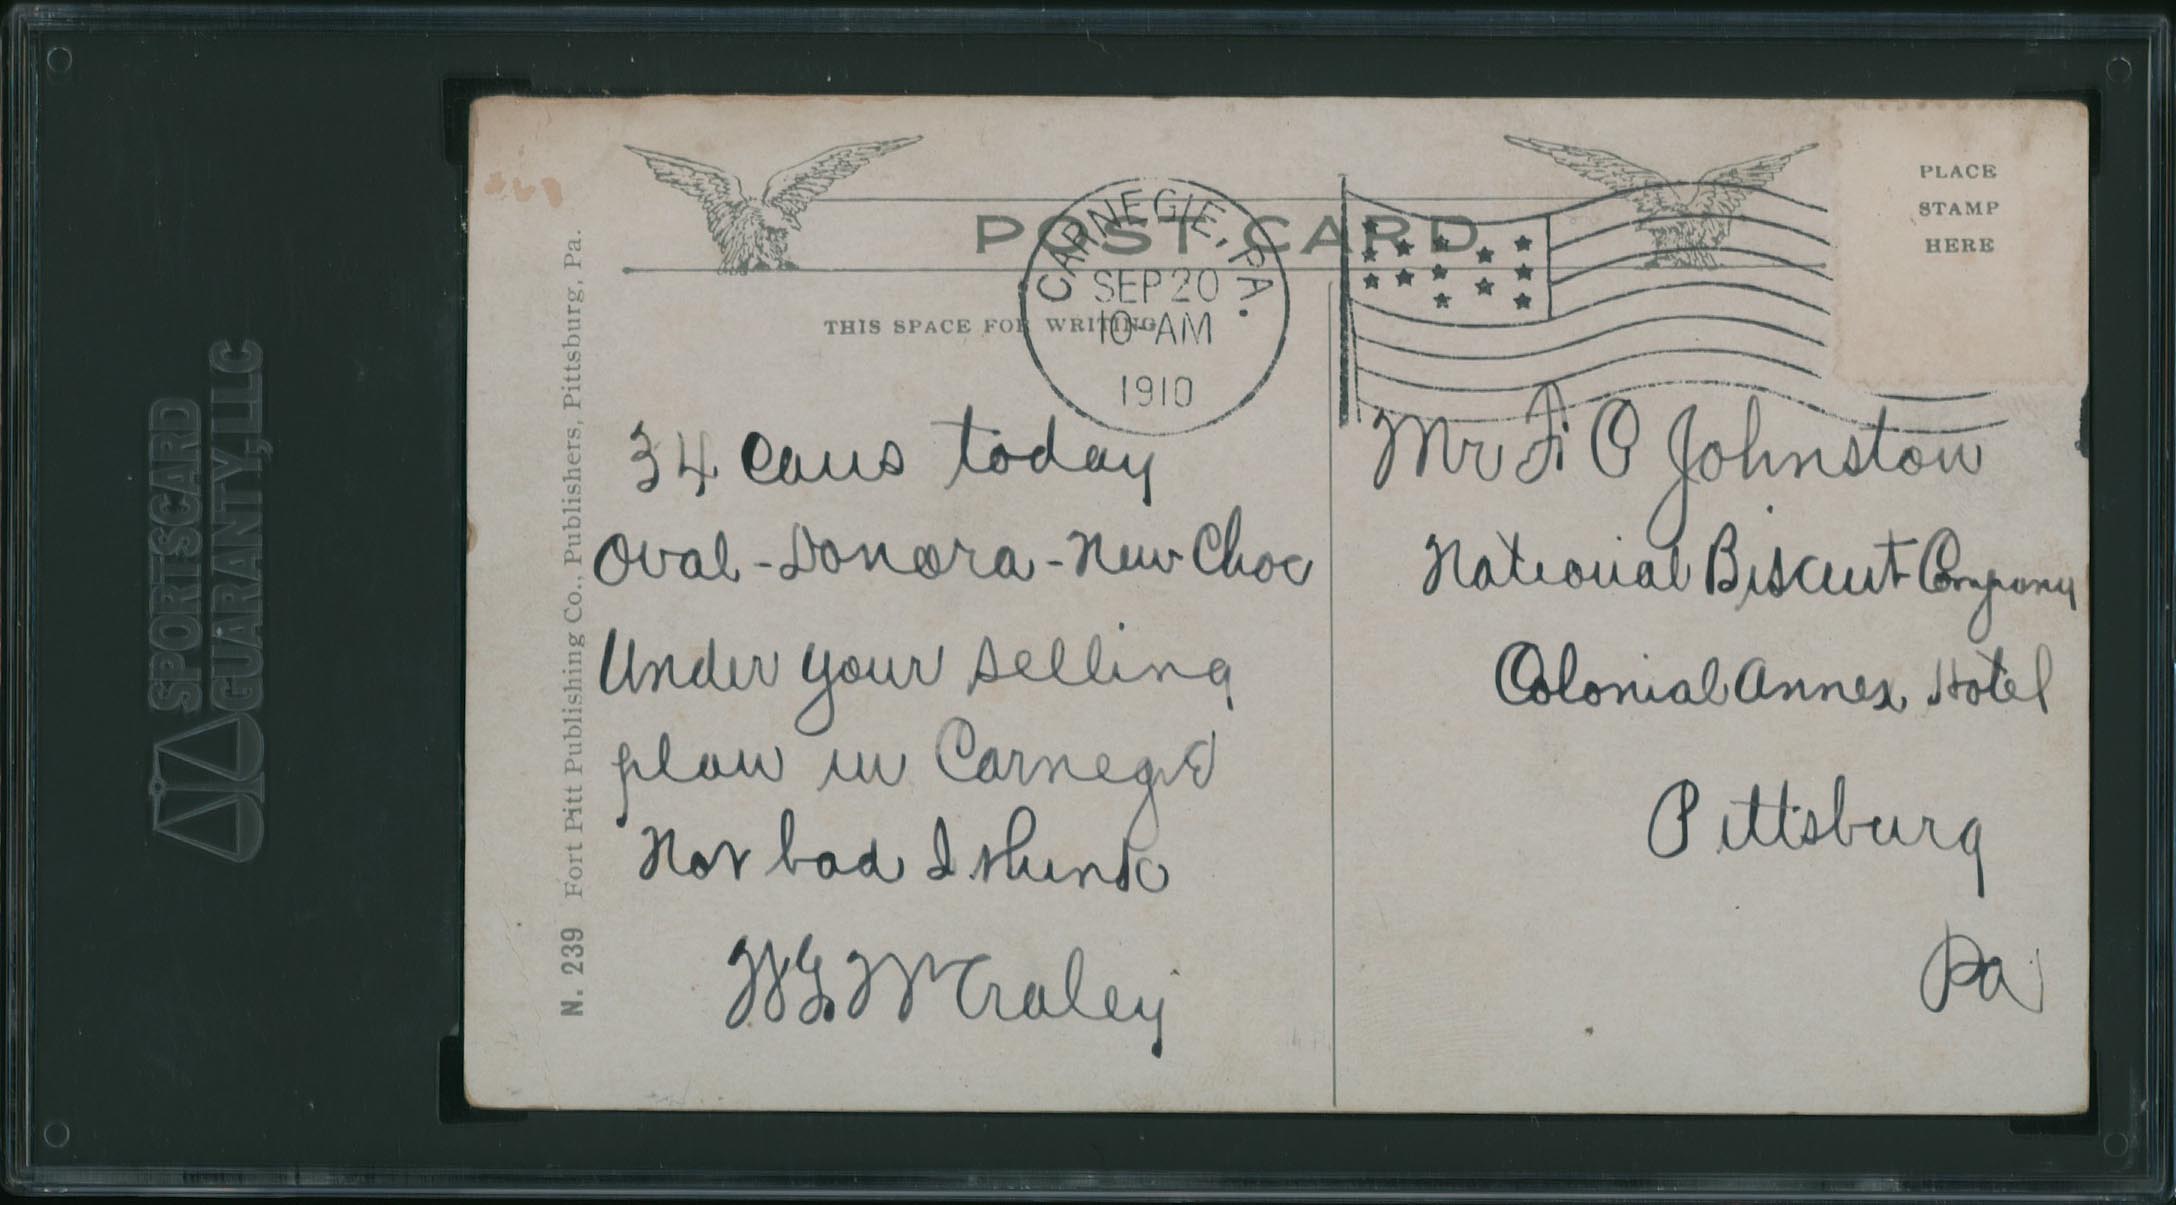 SPORTSCARD
GUARANTY, LLC
N. 239 Fort Pitt Publishing Co., Publishers, Pittsburg, Pa.
POST CARD
CARNEGIE, PA.
SEP 20
10-AM
1910
THIS SPACE FOR WRITING
PLACE
STAMP
HERE
34 cans today
Oval - Donora - New Choc
Under your selling
plan in Carnegie
Not bad I think
Mr F. O Johnston
National Biscuit Company
Colonial Annex Hotel
Pittsburg
Pa